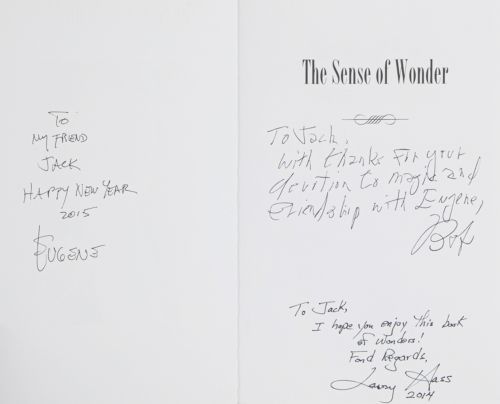 To
My FRIEND
JACK
HAPPY NEW YEAR
2015
EUGENE
The Sense of Wonder
To Jack,
With thanks for your
devotion to magic and
friendship with Eugene,
Bob
To Jack,
I hope you enjoy this book
of wonders!
Fond Regards,
Larry Hass
2014